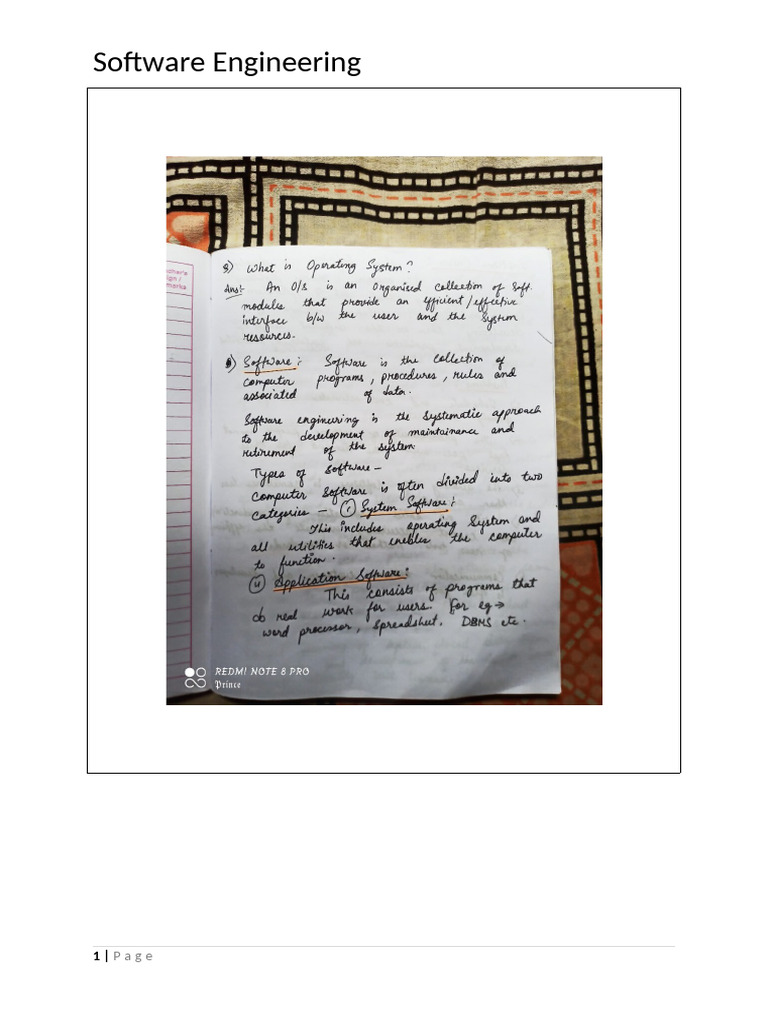 Software Engineering
acher's
ign /
marks
Q) What is Operating System?
Ans:- An O/S is an organised collection of soft.
module that provide an efficient/effective
interface b/w the user and the system
resources.
Software: Software is the collection of
computer programs, procedures, rules and
associated of data.
Software engineering is the systematic approach
to the development of maintainance and
retirement of the system.
Types of software -
Computer software is often divided into two
categories - (i) System Software:
This includes operating System and
all utilities that enables the computer
to function.
(ii) Application Software:
This consists of programs that
do real work for users. For eg →
word processor, spreadsheet, DBMS etc.
REDMI NOTE 8 PRO
Prince
1 | Page